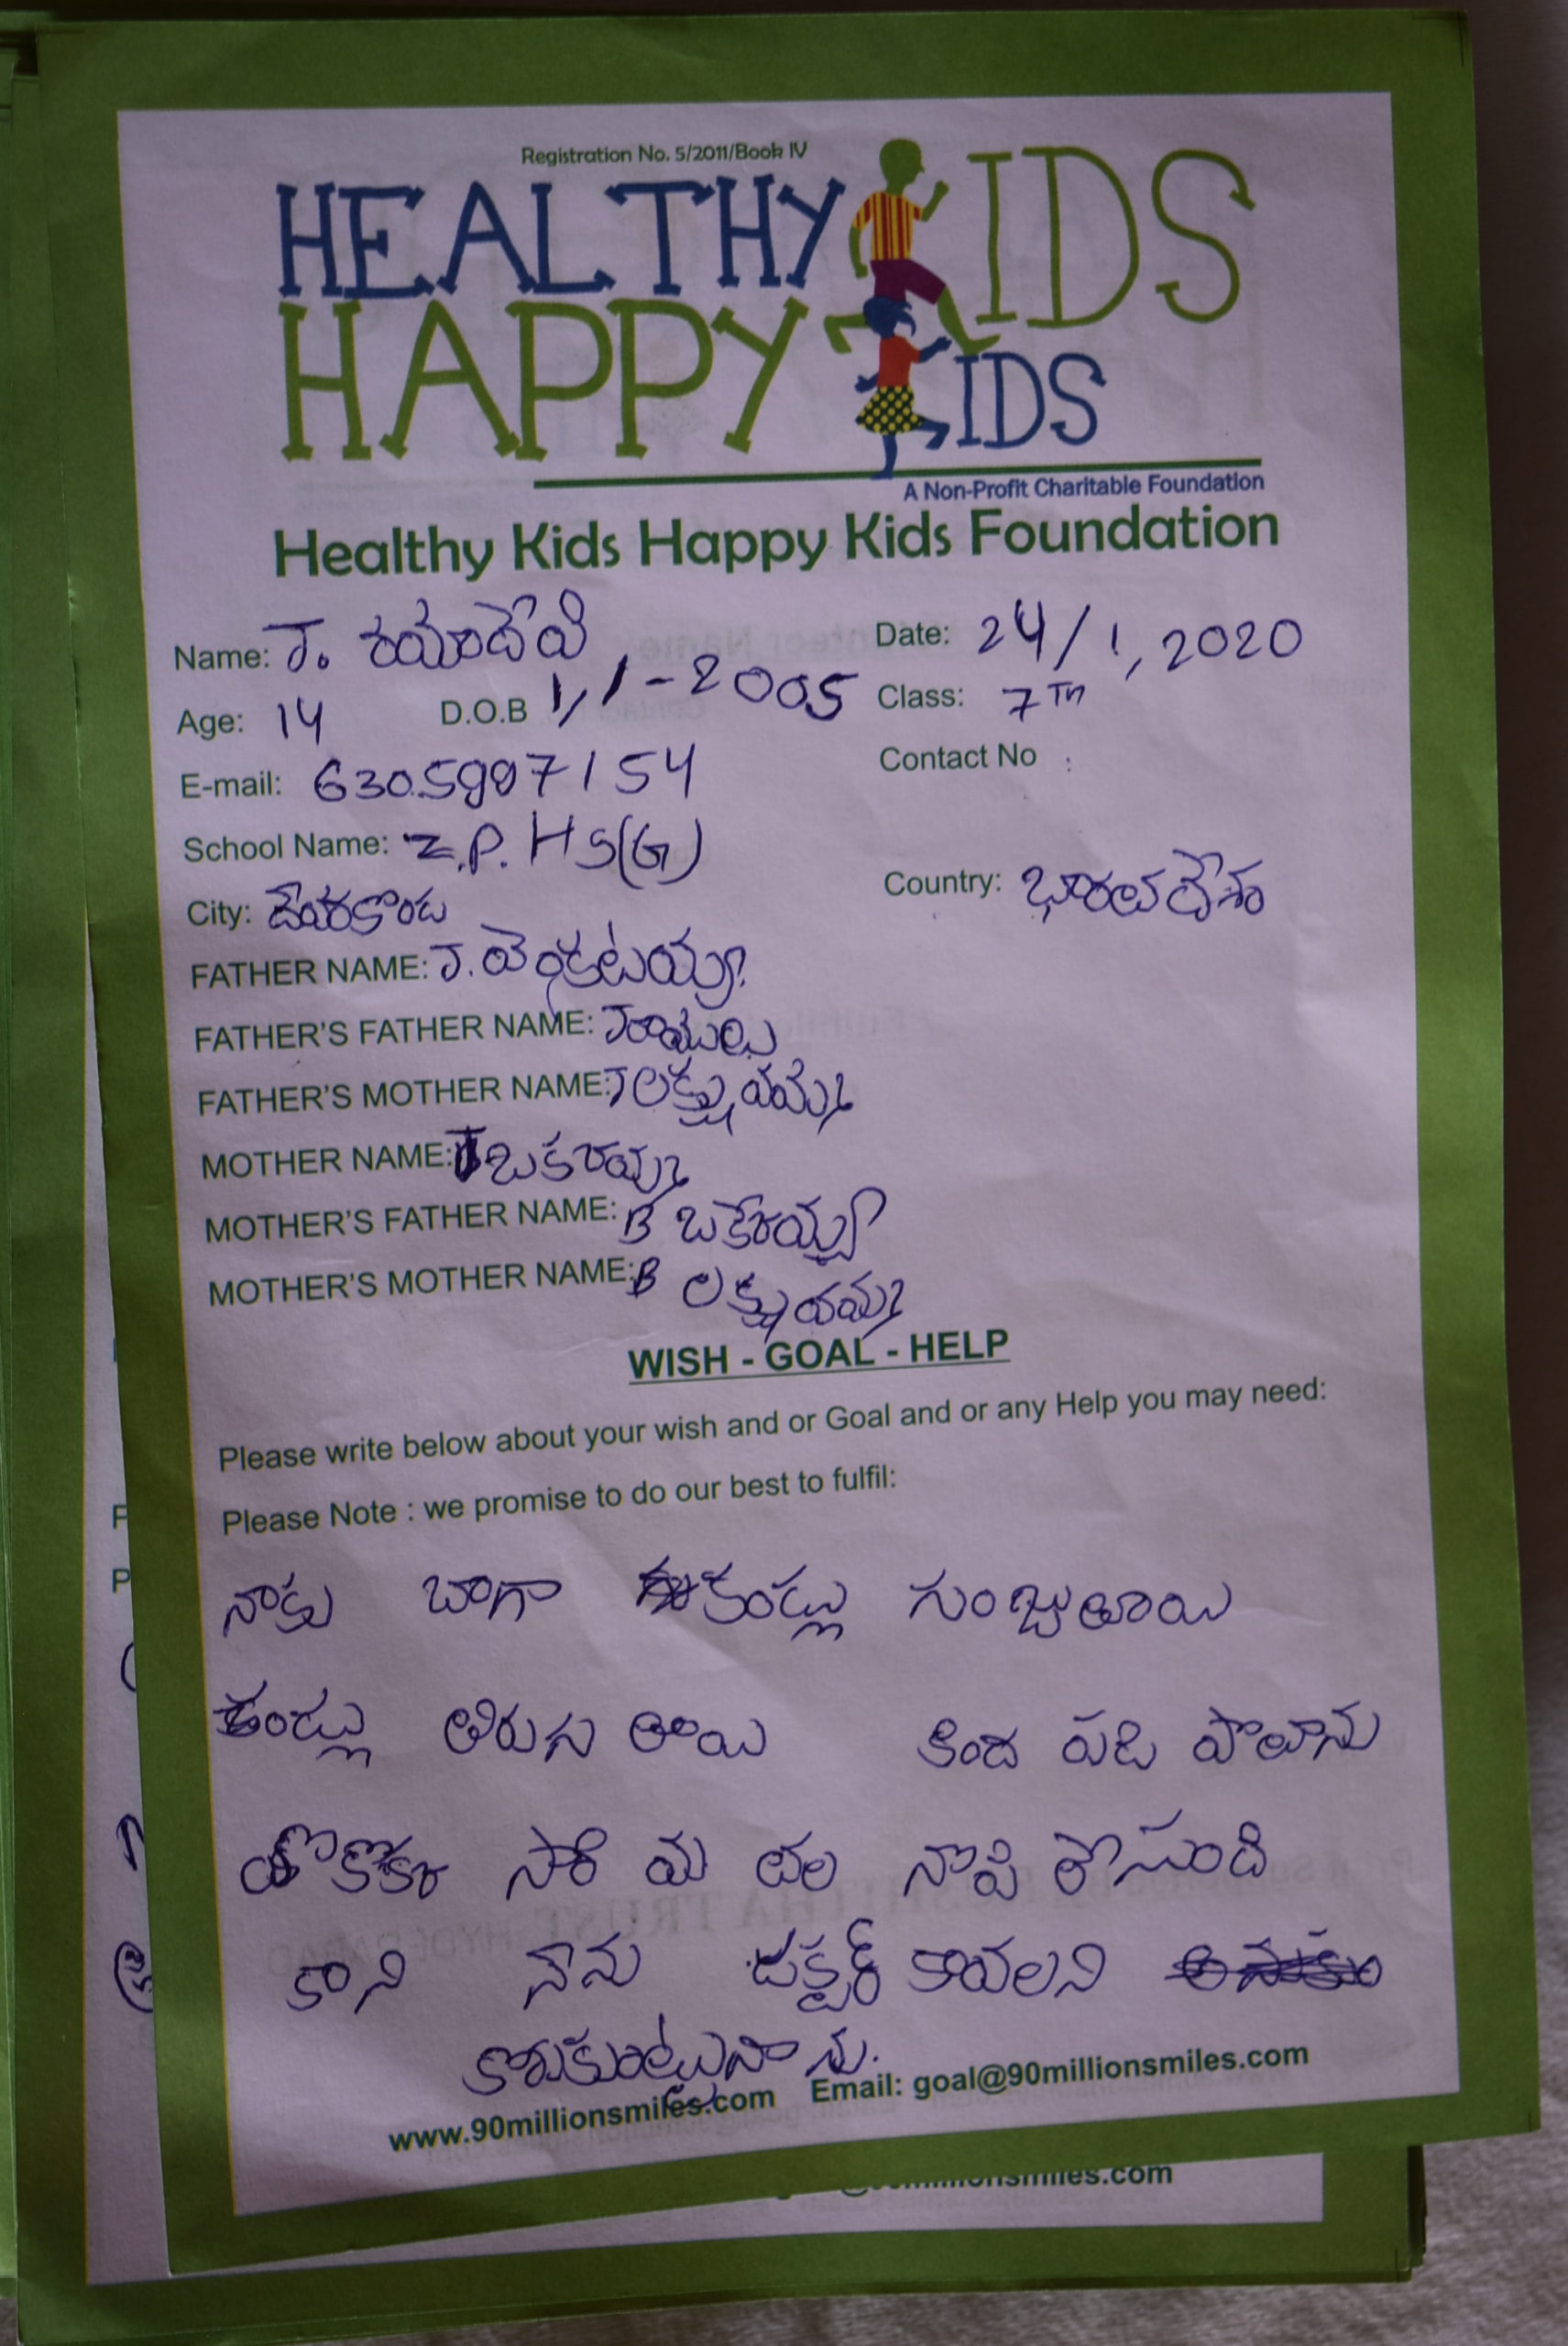 Registration No. 5/2011/Book IV
HEALTHY KIDS
HAPPY KIDS
A Non-Profit Charitable Foundation
Healthy Kids Happy Kids Foundation
Name: J. Date: 24/1, 2020
Age: 14 D.O.B 1/1-2005 Class: 7Th
E-mail: Contact No :
School Name: Z.P. HS(G)
City: దేవరకొండ Country: భారతదేశం
FATHER NAME: J. వెంకటయ్య
FATHER'S FATHER NAME: J రాములు
FATHER'S MOTHER NAME: J
MOTHER NAME: J
MOTHER'S FATHER NAME: B
MOTHER'S MOTHER NAME: B
WISH - GOAL - HELP
Please write below about your wish and or Goal and or any Help you may need:
Please Note : we promise to do our best to fulfil:
నాకు బాగా కండ్లు గుంజుతాయి
కండ్లు తిరుగ తాయి కింద పడి పోతాను
సారి నొపి లేసుంది
కాని నేను డక్టర్ కావలని
కోరుకుంటున్నాను.
www.90millionsmiles.com Email: goal@90millionsmiles.com